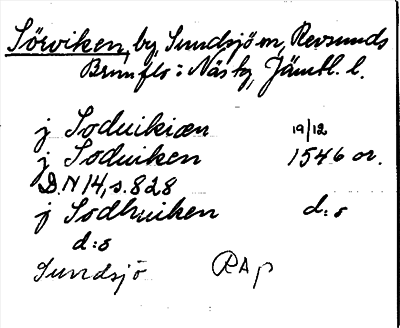 Sörviken, by, Sundsjö sn, Revsunds
Brunflo i Näs tg, Jämtl. l.
j Soduikiæn 19/12
j Soduiken 1546 or.
D.N 14, s. 828
j Sodhuiken d:o
d:o
Sundsjö RAp